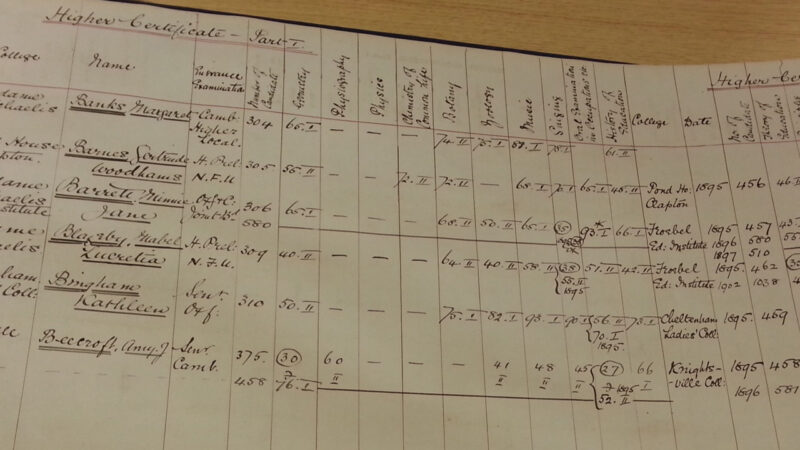 Higher Certificate - Part I.
Higher-Cer
College
Name
Entrance Examination
Number of Candidate
Geometry
Physiography
Physics
Chemistry of Common Life
Botany
Zoology
Music
Singing
Oral Examination in Occupations etc.
History of Education
College
Date
No. of Candidate
Theory of Education
Banks Margaret Camb. Higher Local. 304 65.I — — — 74.II 75.I 59.I 75.I 61.II
Barnes Gertrude Woodhams H. Prel: N.F.U 305 55.II — — 72.II 72.II — 68.I 70.I 65.I 45.II Pond Ho: Clapton 1895 456 46.II
Barrett Minnie Jane 306 580 65.I — — — 68.II 50.II 65.I (35) 93.I 66.I Froebel Ed: Institute 1895 1896 1897 457 580 510
Blaxby, Mabel Lucretia H. Prel: N.F.U. 309 40.II — — — 64.II 40.II 58.II (38) 55.II 1895 51.II 42.II Froebel Ed: Institute 1895. 1902 462 1038
Bingham Kathleen Senr. Oxf: 310 50.II — — — 75.I 82.I 93.I 90.I 56.II 70.I 1895. 75.I Cheltenham Ladies' Coll: 1895. 459
Beecroft, Amy J. Senr. Camb. 375. 458 (30) 76.I 60 II — — — 41 II 48 II 45 II (27) 1895 52.II 66 I Knights-ville Coll: 1895 1896 458 581